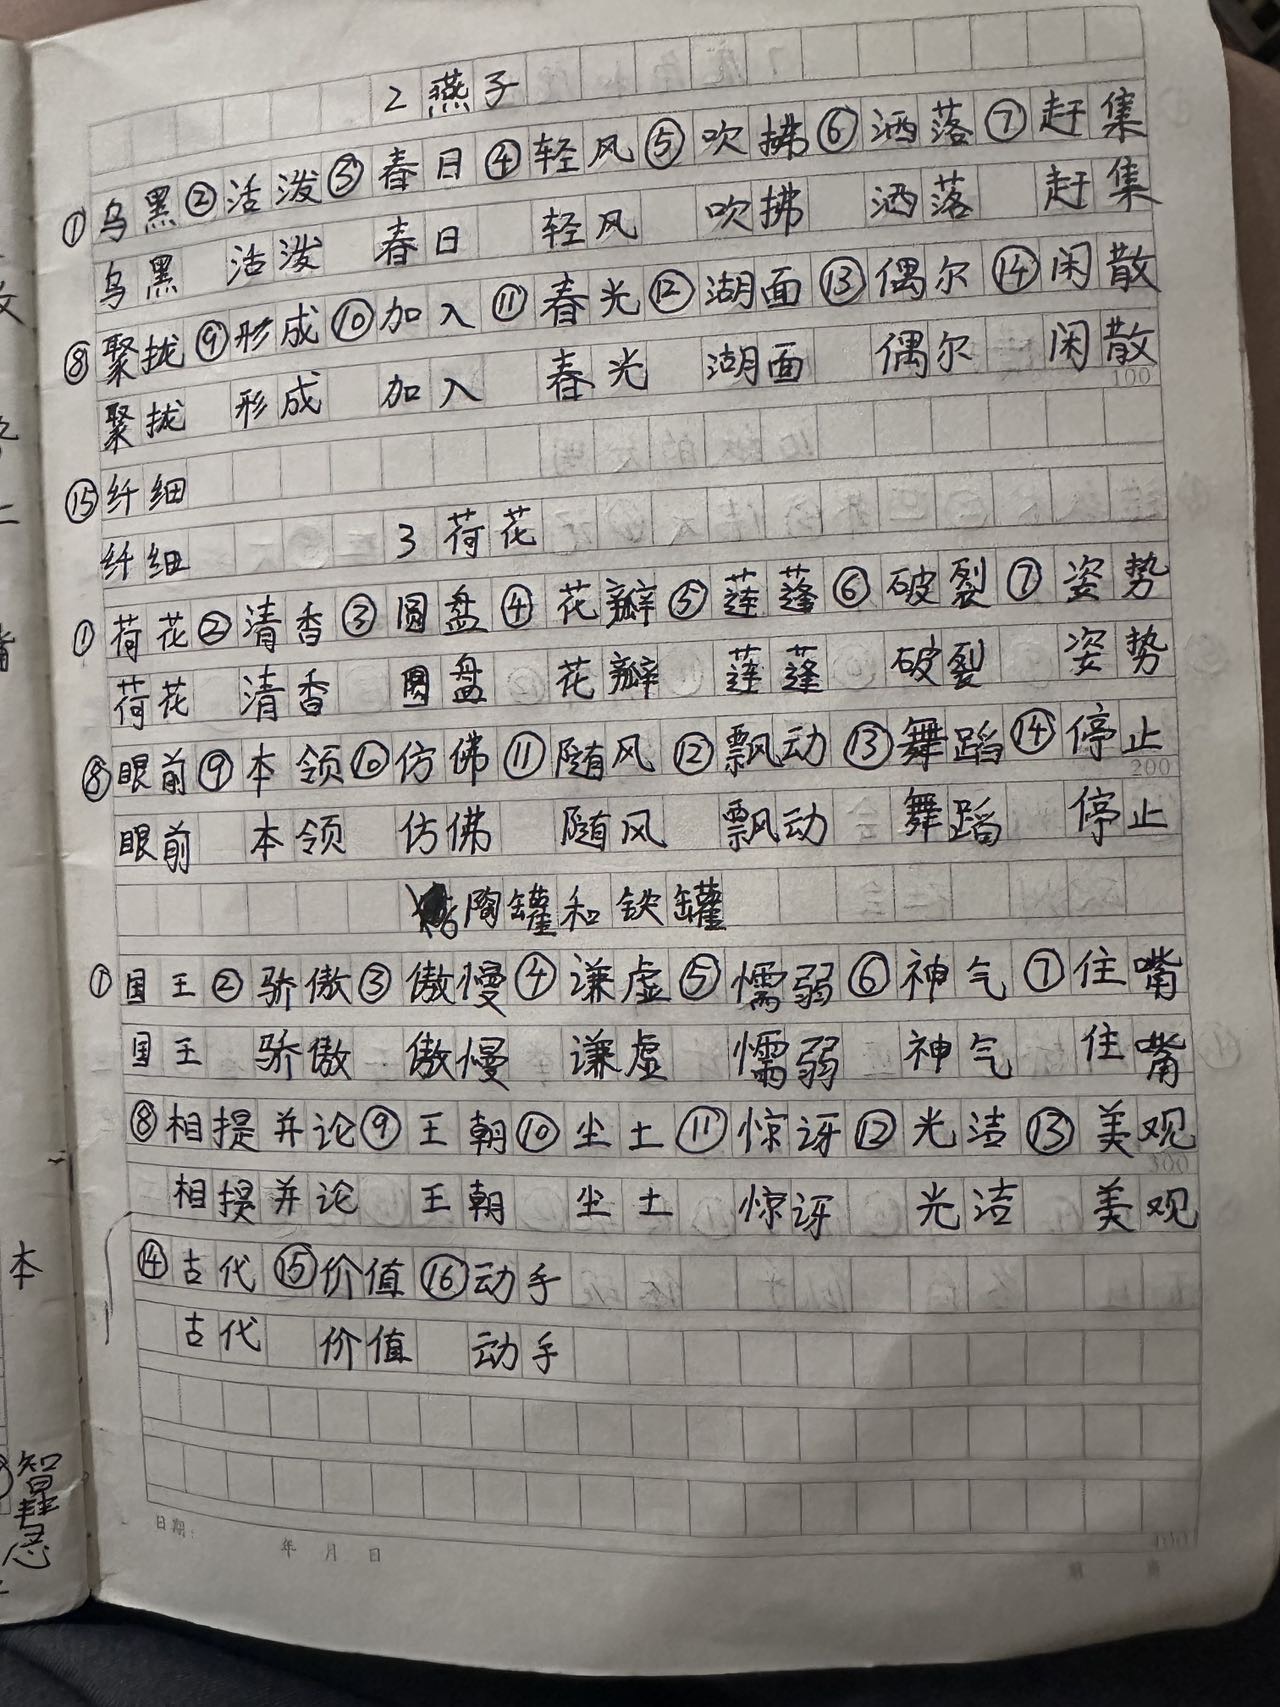 2 燕子
①乌黑②活泼③春日④轻风⑤吹拂⑥洒落⑦赶集
乌黑 活泼 春日 轻风 吹拂 洒落 赶集
⑧聚拢⑨形成⑩加入⑪春光⑫湖面⑬偶尔⑭闲散
聚拢 形成 加入 春光 湖面 偶尔 闲散
100
⑮纤细
纤细
3 荷花
①荷花②清香③圆盘④花瓣⑤莲蓬⑥破裂⑦姿势
荷花 清香 圆盘 花瓣 莲蓬 破裂 姿势
⑧眼前⑨本领⑩仿佛⑪随风⑫飘动⑬舞蹈⑭停止
200
眼前 本领 仿佛 随风 飘动 舞蹈 停止
6陶罐和铁罐
①国王②骄傲③傲慢④谦虚⑤懦弱⑥神气⑦住嘴
国王 骄傲 傲慢 谦虚 懦弱 神气 住嘴
⑧相提并论⑨王朝⑩尘土⑪惊讶⑫光洁⑬美观
300
相提并论 王朝 尘土 惊讶 光洁 美观
⑭古代⑮价值⑯动手
古代 价值 动手
400
日期: 年 月 日
本
智慧